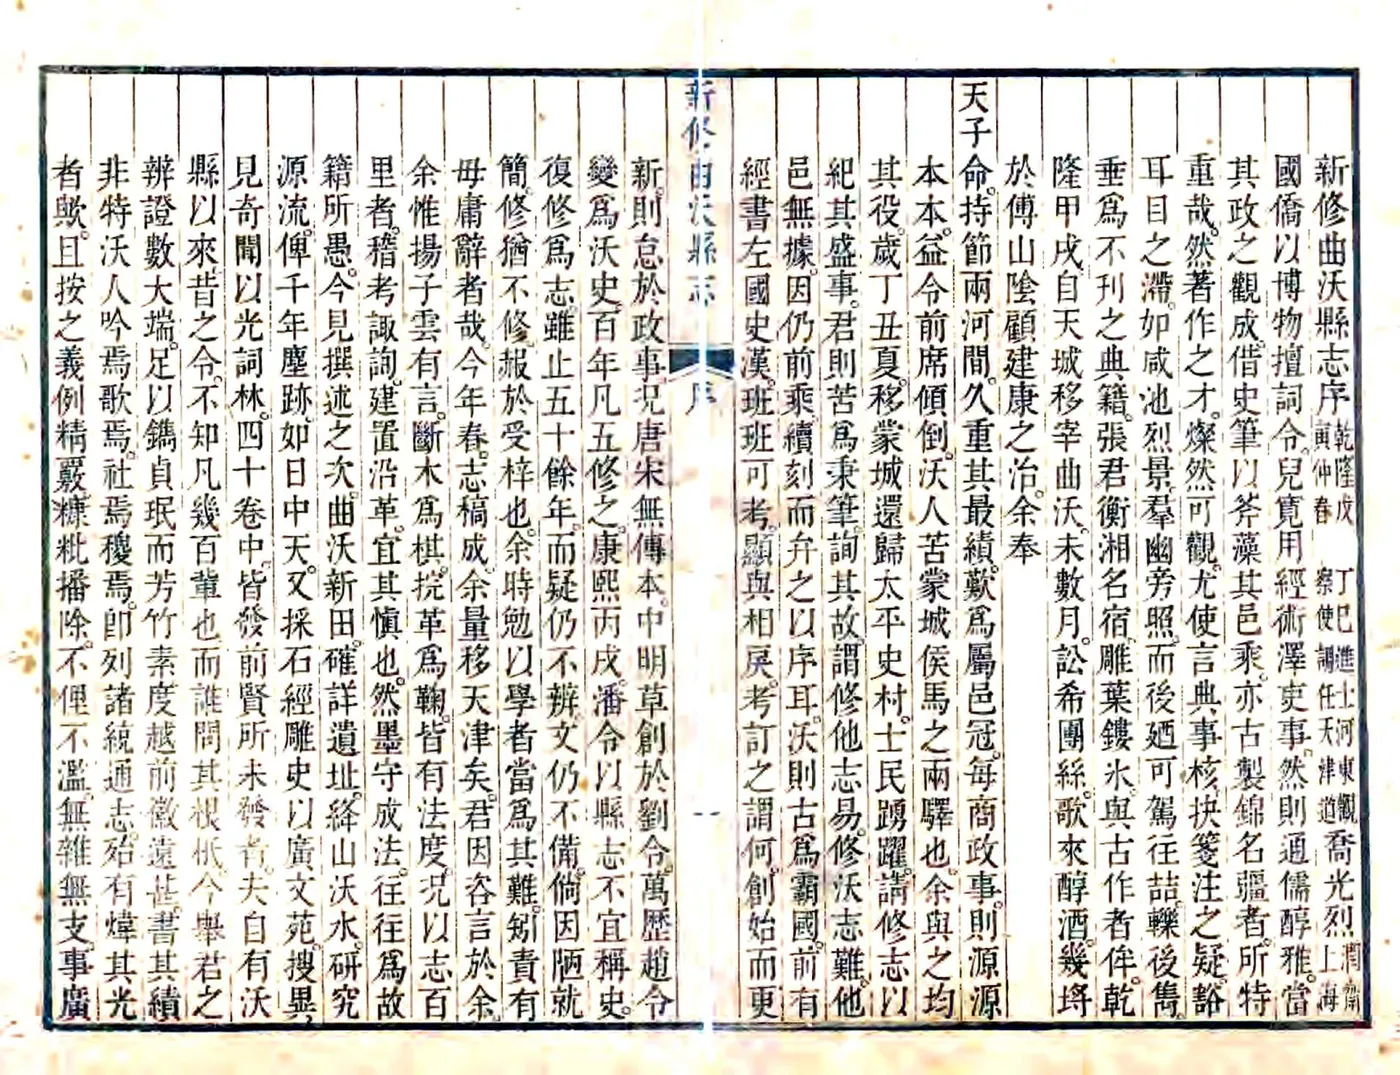 新修曲沃縣志序乾隆戊寅仲春 丁巳進士河東觀察使調任天津道喬光烈潤齋上海
國僑以博物擅詞令。兒寬用經術澤吏事。然則通儒醇雅。當
其政之觀成。借史筆以斧藻其邑乘。亦古製錦名疆者。所特
重哉。然著作之才。燦然可觀。尤使言典事核。抉箋注之疑。豁
耳目之滯。如咸池烈景。羣幽旁照。而後廼可駕往喆。轢後雋。
垂爲不刊之典籍。張君衡湘名宿。雕葉鏤氷。與古作者侔。乾
隆甲戌。自天城移宰曲沃。未數月。訟希團絲。歌來醇酒。幾埒
於傅山陰顧建康之治。余奉
天子命。持節兩河間。久重其最績。歎爲屬邑冠。每商政事。則源源
本本。益令前席傾倒。沃人苦蒙城侯馬之兩驛也。余與之均
其役。歲丁丑夏。移蒙城還歸太平史村。士民踴躍。請修志以
紀其盛事。君則苦爲秉筆。詢其故。謂修他志易。修沃志難。他
邑無據。因仍前乘。續刻而弁之以序耳。沃則古爲霸國。前有
經書左國史漢。班班可考。顯與相戾。考訂之謂何。創始而更
新修曲沃縣志 序 一
新。則怠於政事。况唐宋無傳本。中明草創於劉令。萬歷趙令
變爲沃史。百年凡五修之。康熙丙戌。潘令以縣志不宜稱史。
復修爲志。雖止五十餘年。而疑仍不辨。文仍不備。倘因陋就
簡。修猶不修。赧於受梓也。余時勉以學者當爲其難。矧責有
毋庸辭者哉。今年春。志稿成。余量移天津矣。君因咨言於余。
余惟揚子雲有言。斷木爲棋。捖革爲鞠。皆有法度。况以志百
里者。稽考諏詢。建置沿革。宜其愼也。然墨守成法。往往爲故
籍所愚。今見撰述之次。曲沃新田。確詳遺址。絳山沃水。研究
源流。俾千年塵跡。如日中天。又採石經雕史以廣文苑。搜異
見奇聞以光詞林。四十卷中。皆發前賢所未發者。夫自有沃
縣以來。昔之令。不知凡幾百輩也。而誰問其根柢。今舉君之
辨證數大端。足以鐫貞珉而芳竹素。度越前徽遠甚。書其績
非特沃人吟焉歌焉。社焉稷焉。卽列諸統通志。殆有煒其光
者歟。且按之義例精覈。糠粃播除。不俚不濫。無雜無支。事廣